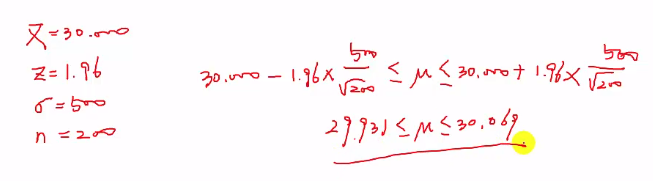 X̄ = 30.000
z = 1.96
σ = 500
n = 200
30.000 - 1.96 × 500/√200 ≤ μ ≤ 30.000 + 1.96 × 500/√200
29.931 ≤ μ ≤ 30.069